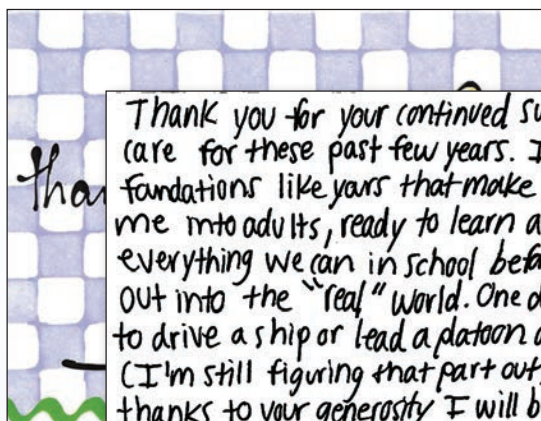 Thank you for your continued su
care for these past few years. I
than
foundations like yours that make
me into adults, ready to learn a
everything we can in school befo
out into the "real" world. One d
to drive a ship or lead a platoon o
(I'm still figuring that part out
thanks to your generosity I will b